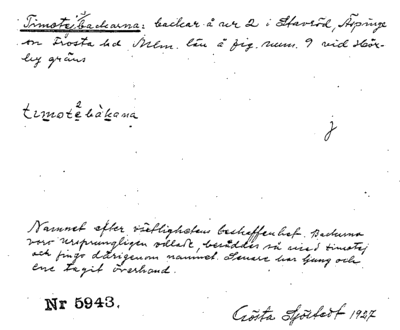 Timotejbackarna: backar å nr 2 i Stavröd, Äspinge
sn Frosta hd Mlm. län å fig. num. 9 vid Hör-
by gräns
tımotɛ²bàkana
j
Namnet efter växtlighetens beskaffenhet. Backarna
voro ursprungligen odlade, besåddes så med timotej
och fingo därigenom namnet. Senare har ljung och
ene tagit överhand.
Nr 5943.
Gösta Sjöstedt 1927